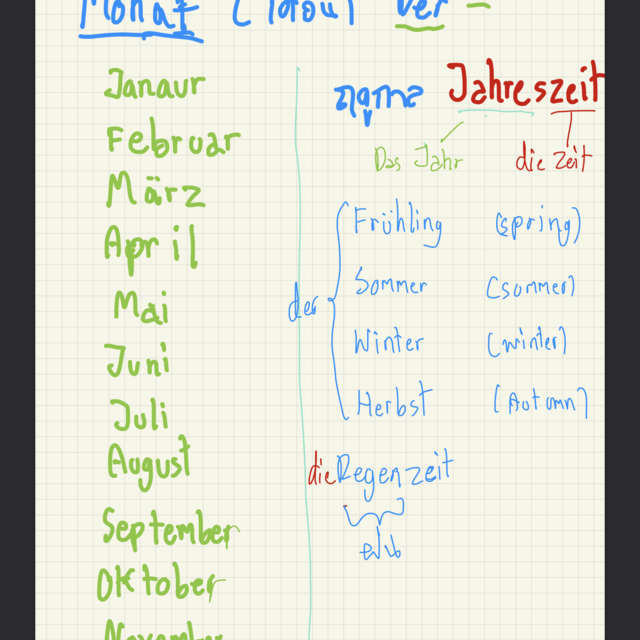 Monat der
Janaur
Februar
März
April
Mai
Juni
Juli
August
September
Oktober
November
Jahreszeit
Das Jahr die Zeit
der
Frühling (spring)
Sommer (summer)
Winter (winter)
Herbst (Autumn)
die Regenzeit